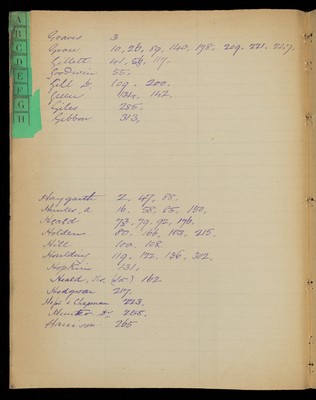 A
B
C
D
E
F
G
H
Graves 3
10, 26, 89, 140, 198, 209, 221, 247.
Gillett 41, 56, 117.
Goodwin 55.
Gill 109. 200.
Green 134, 142.
Giles 285.
Gibbon 313.
Haygarth 2, 47, 88.
Hunter, 16. 58. 65, 150.
Heald 73, 79, 92, 176.
Holden 80. 166, 183, 215.
Hill 100. 108.
119, 172, 136, 302.
Hopkins 131.
Heald, 162
Hodgson 217.
Hope & Chapman 223.
Hunter 265.
Harrison 265